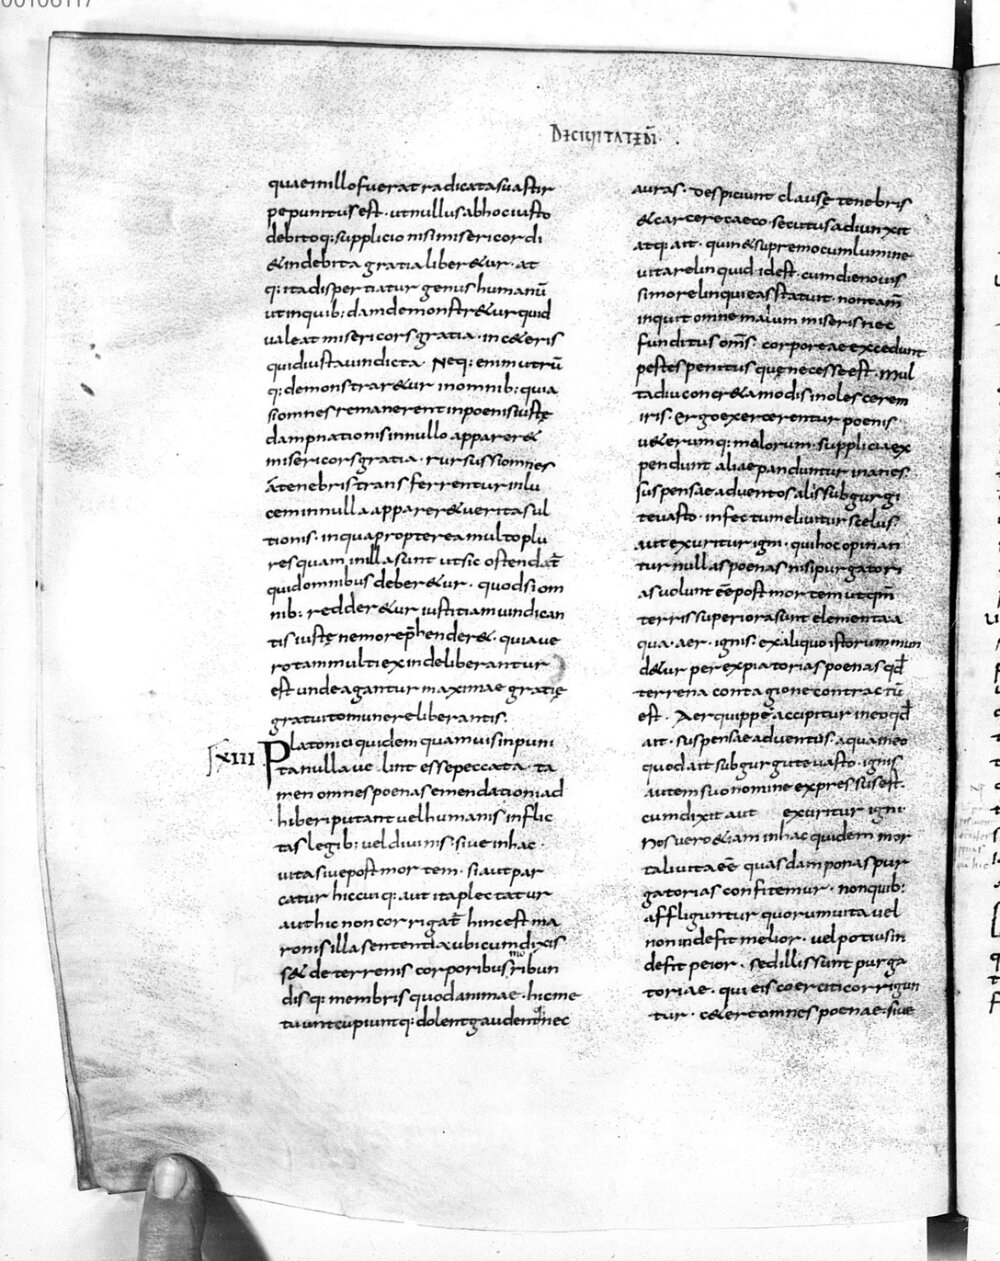 00106117
DE CIUITATE DĪ
quaeinillofuerat radicatasuastir
pepunitusest · utnullusabhociusto
debitoq: supplicio nisimisericordi
&indebita gratialiber&ur · at
q: itadispertiatur genushumanū
utinquib:damdemonstr&urquid
ualeat misericorsgratia · inc&eris
quidiustauindicta · Neq: enimutrū
q: demonstrar&ur inomnib: quia
siomnesremanerentinpoenisiustę
dampnationisinnullo apparer&
misericorsgratia · rursussiomnes
atenebristransferrenturinlu
ceminnulla apparer&ueritasul
tionis · inquapropterea multoplu
resquam inillasunt utsic ostendat̄
quidomnibus deber&ur · quodsiom
nib: redder&ur iustitiamuindican
tis iustę nemorephender& · quiaue
rotammultiexindeliberantur
est undeagantur maximae gratię
gratuitomunereliberantis.
XIII Platonici quidem quamuisinpuni
tanullaue lint essepeccata · ta
men omnespoenasemendationiad
hiberiputant uelhumanis inflic
tas legib: uel diuinis · siue inhac
uitasiuepost mor tem · siautpar
catur hiccuiq: aut itaplectatur
authic non corrigat̄ hinc est ma
ronisilla sententia ubicumdixis
s& de terrenis corporibus mo ribun
disq: membris quodanimae · hicme
tuuntcupiuntq: dolentgaudentnec
auras · despiciunt clausę tenebris
&carcere caeco · secutusadiunxit
atq: ait · quin&supremocumlumine
uitarelinquid · idest · cumdienouis
simorelinquieasstatuit · nontam̄
inquit omne malum miserisnec
funditusom̄s · corporeae excedunt
pestes penitus quęnecesseest · mul
tadiuconcr&amodisinolescerem
iris · Ergoexercerentur poenis
u&erumq: malorum · supplicia ex
pendunt aliae panduntur inanes
suspensae aduentos aliis subgurgi
te uasto · infectum eluitur scelus
aut exuritur igni · quihocopinan
tur nullas poenas nisipurgatori
asuolunt eēpost mortem utqm̄
terrissuperiorasunt elementa a
qua · aer · ignis · ex aliquo istorum mun
d&ur per expiatorias poenas qd̄
terrena contagione contractū
est · Aerquippe accipitur ineoqd̄
ait · suspensae aduentus · aquaineo
quodait subgurgite uasto · ignis
autemsuo nomine expressusest ·
cumdixit aut exuritur igni ·
Nosuero&iam inhac quidem mor
taliuita eē quasdam ponaspur
gatorias confitemur · nonquib:
affliguntur quorumuita uel
non indefit melior · uel potiusin
defit peior · sedillissunt purga
toriae · qui eiscoerciti corrigun
tur · c&eraeomnes poenae · siue